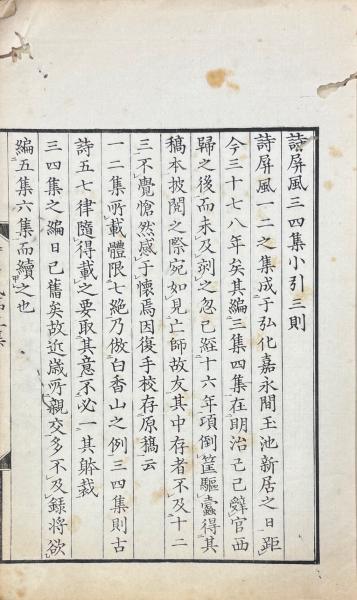 詩屏風三四集小引三則
詩屏風一二之集成于弘化嘉永間玉池新居之日距
今三十七八年矣其編三集四集在明治己己辭官西
歸之後而未及刻之忽已經十六年頃倒筐驅蠹得其
稿本披閲之際宛如見亡師故友其中存者不及十二
三不覺愴然感于懷焉因復手校存原稿云
一二集所載體限七絶乃倣白香山之例三四集則古
詩五七律隨得載之要取其意不必一其躰裁
三四集之編日已舊矣故近歲所親交多不及録將欲
編五集六集而續之也